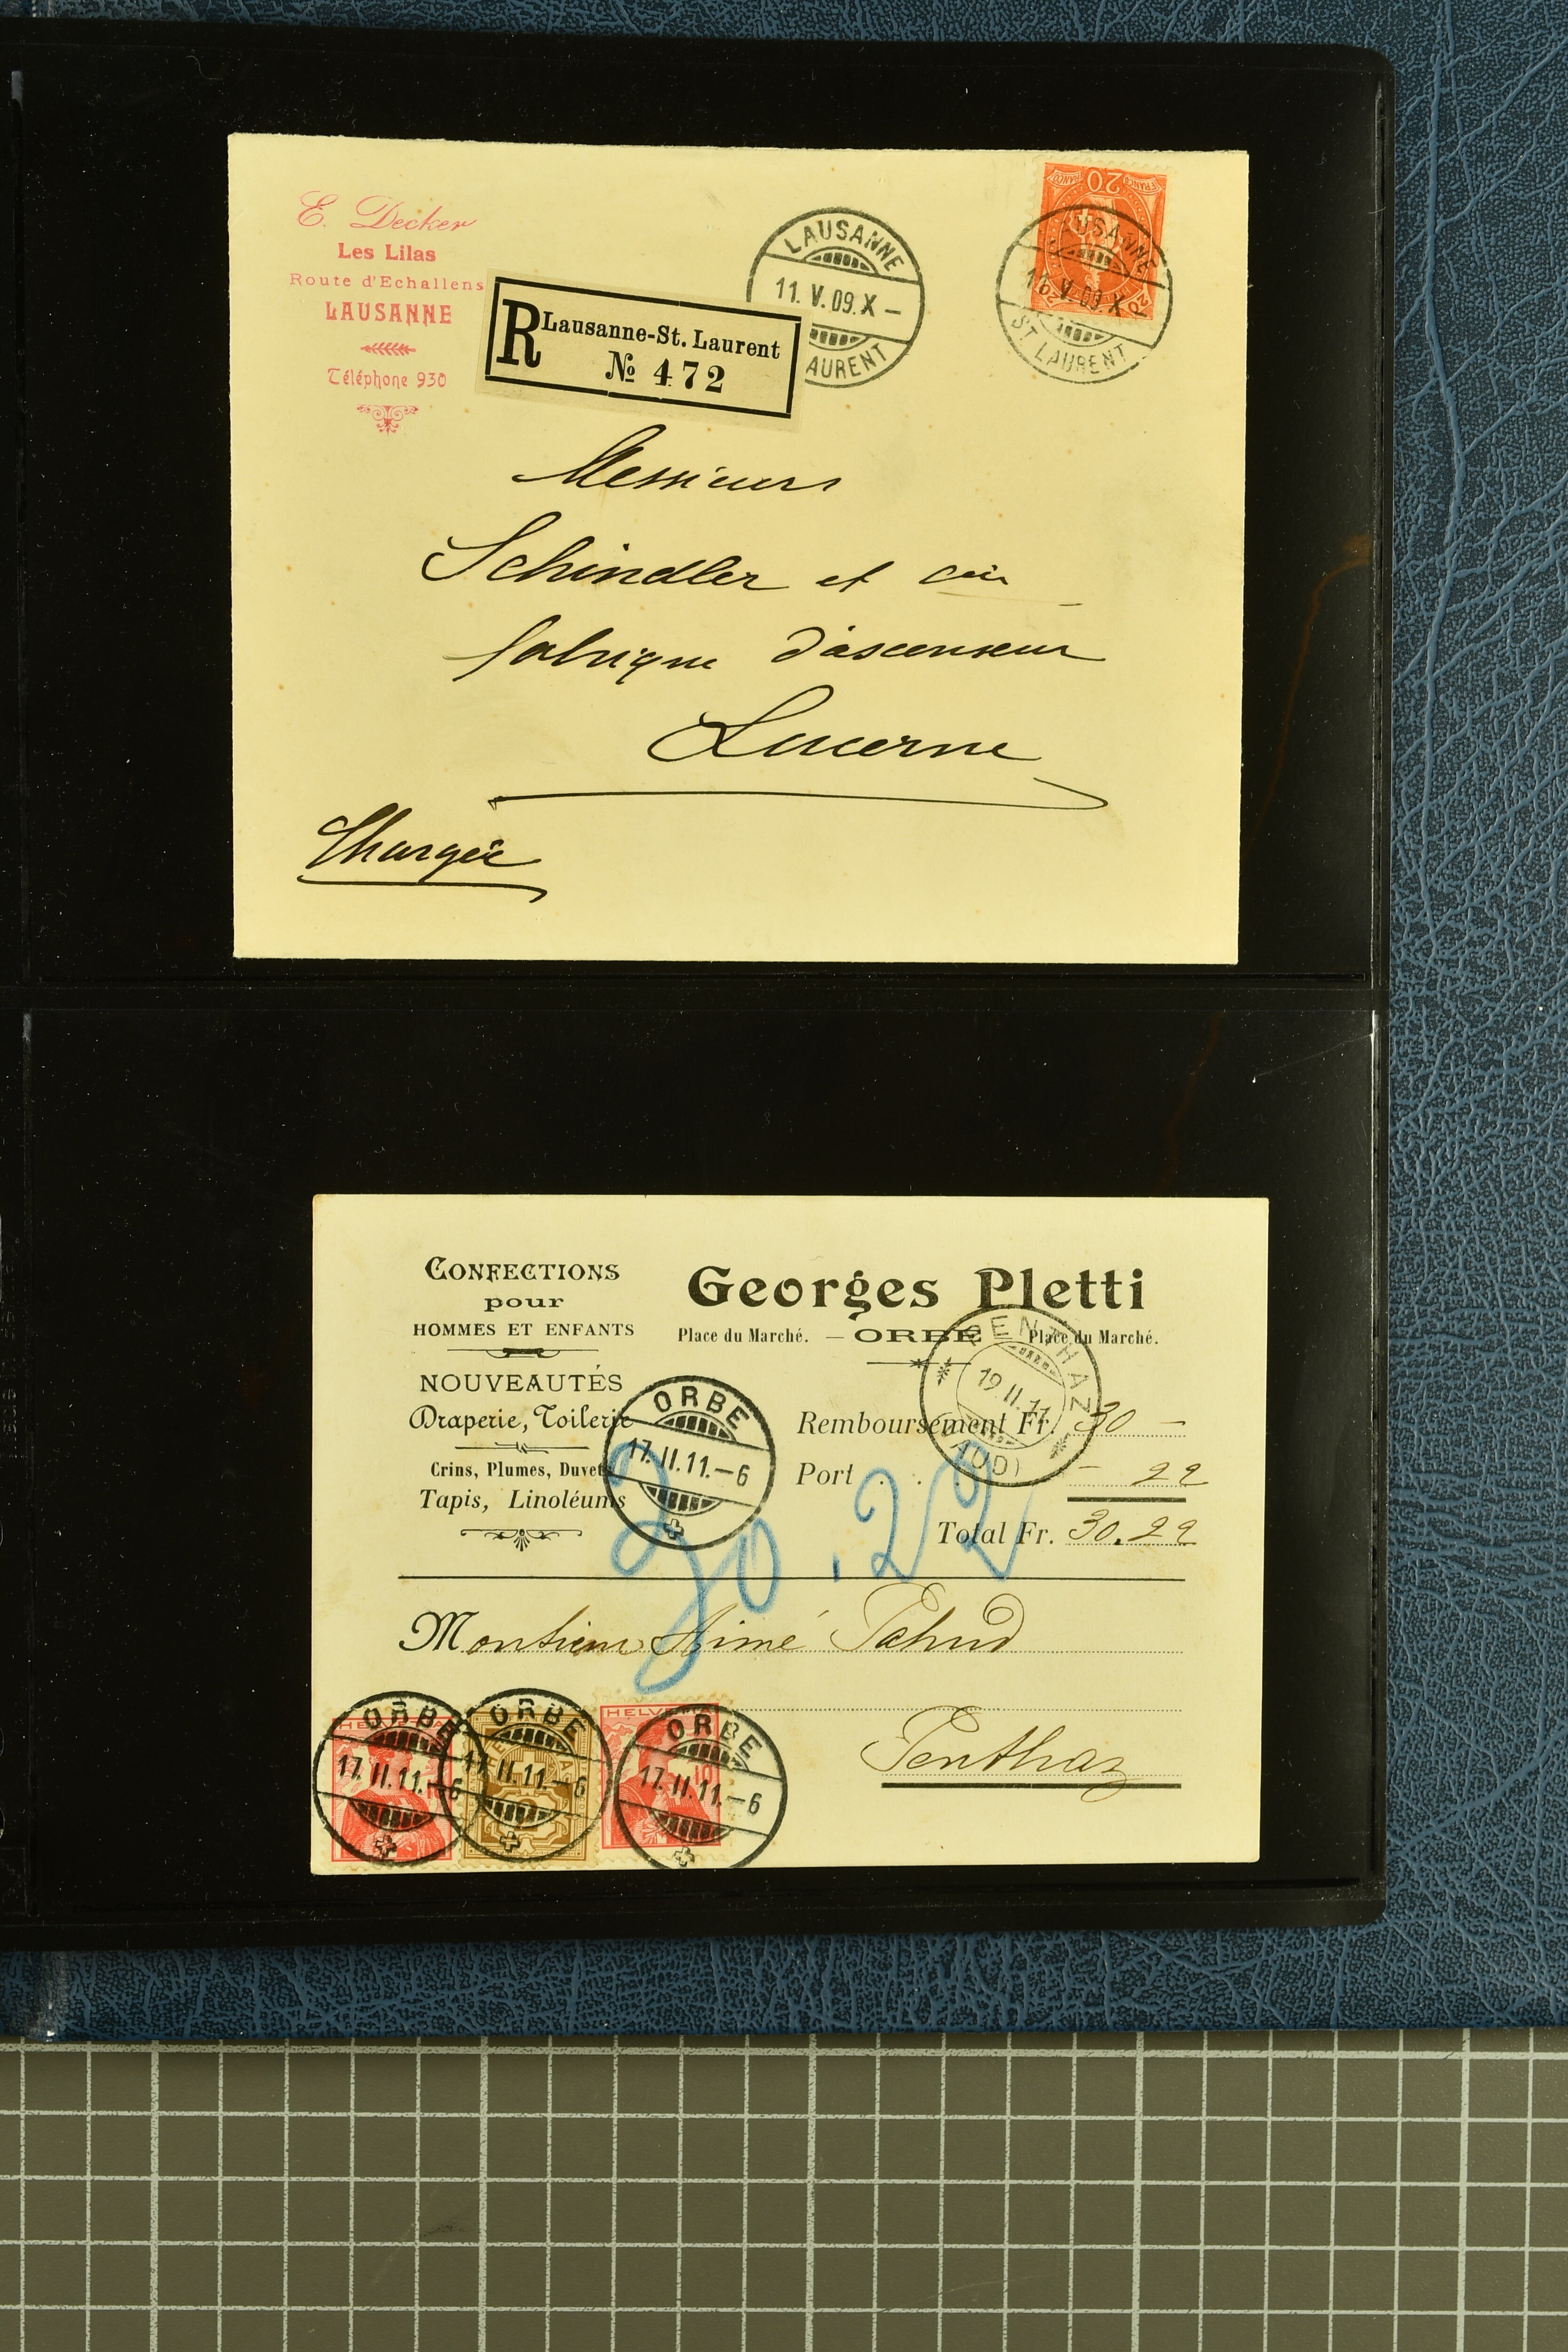 E. Decker
Les Lilas
Route d'Echallens
LAUSANNE
Téléphone 930
R Lausanne-St. Laurent
№ 472
LAUSANNE
11.V.09.X–
AURENT
FRANCO 20 FRANCO
LAUSANNE
11.V.09.X
ST LAURENT
Messieurs
Schindler et Cie
fabrique d'ascenseur
Lucerne
Chargée
CONFECTIONS
pour
HOMMES ET ENFANTS
NOUVEAUTÉS
Draperie, Toilerie
Crins, Plumes, Duvets
Tapis, Linoléums
Georges Pletti
Place du Marché. – ORBE – Place du Marché.
PENTHAZ
19.II.11
(VAUD)
ORBE
17.II.11.–6
Remboursement Fr. 30 –
Port . . – 22
Total Fr. 30.22
30.22
Monsieur Aimé Pahud
Penthaz
ORBE
17.II.11.–6
ORBE
17.II.11.–6
HELV
10
ORBE
17.II.11.–6